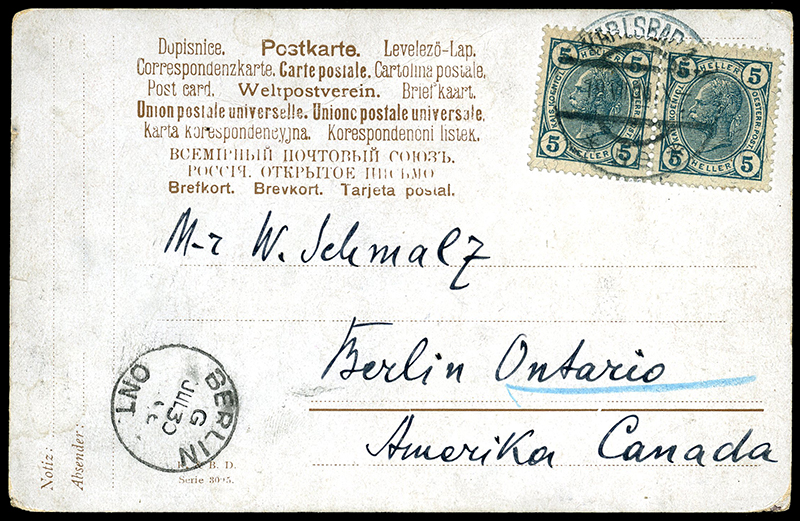 Dopisnice. Postkarte. Levelező-Lap.
Correspondenzkarte. Carte postale. Cartolina postale.
Post card. Weltpostverein. Briefkaart.
Union postale universelle. Unionc postale universale.
Karta korespondencyjna. Korespondencni listek.
ВСЕМІРНЫЙ ПОЧТОВЫЙ СОЮЗЪ.
РОССІЯ. ОТКРЫТОЕ ПИСЬМО
Brefkort. Brevkort. Tarjeta postal.
5 5
HELLER
KAIS. KÖNIGL. OESTERR. POST
5 HELLER 5
5 5
HELLER
KAIS. KÖNIGL. OESTERR. POST
5 HELLER 5
KARLSBAD
M-r W. Schmalz
Berlin Ontario
Amerika Canada
BERLIN ONT
G
JUL 30
Notiz:
Absender:
B. D.
Serie